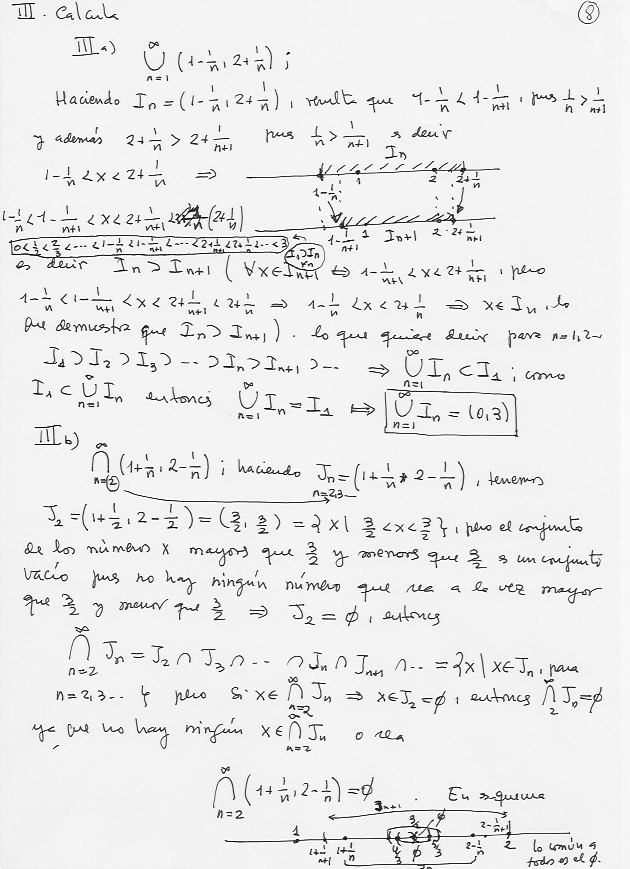 III. Calcula
8
III a) ∞ ⋃ n=1 (1-1/n, 2+1/n) ;
Haciendo In = (1-1/n, 2+1/n), resulta que 1-1/n < 1-1/(n+1), pues 1/n > 1/(n+1)
y además 2+1/n > 2+1/(n+1) pues 1/n > 1/(n+1) es decir
In
1-1/n < x < 2+1/n ⇒
1-1/n 1 2 2+1/n
1-1/n < 1-1/(n+1) < x < 2+1/(n+1) < (2+1/n)
1-1/(n+1) 1 In+1 2 2+1/(n+1)
0<1/2<2/3<...<1-1/n<1-1/(n+1)<...<2+1/(n+1)<2+1/n<...<3
I1⊃In ∀n
es decir In ⊃ In+1 (∀x∈In+1 ⇔ 1-1/(n+1) < x < 2+1/(n+1), pero
1-1/n < 1-1/(n+1) < x < 2+1/(n+1) < 2+1/n ⇒ 1-1/n < x < 2+1/n ⇒ x∈In, lo
que demuestra que In ⊃ In+1). lo que quiere decir para n=1,2...
I1 ⊃ I2 ⊃ I3 ⊃ ... ⊃ In ⊃ In+1 ⊃ ... ⇒ ∞ ⋃ n=1 In ⊂ I1 ; como
I1 ⊂ ∞ ⋃ n=1 In entonces ∞ ⋃ n=1 In = I1 ⇒ ∞ ⋃ n=1 In = (0,3)
III b)
∞ ⋂ n=2 (1+1/n, 2-1/n) ; haciendo Jn = (1+1/n, 2-1/n), tenemos
n=2,3...
J2 = (1+1/2, 2-1/2) = (3/2, 3/2) = {x | 3/2 < x < 3/2}, pero el conjunto
de los números x mayores que 3/2 y menores que 3/2 es un conjunto
vacío pues no hay ningún número que sea a la vez mayor
que 3/2 y menor que 3/2 ⇒ J2 = ∅, entonces
∞ ⋂ n=2 Jn = J2 ∩ J3 ∩ ... ∩ Jn ∩ Jn+1 ∩ ... = {x | x∈Jn, para
n=2,3... } pero si x∈ ∞ ⋂ n=2 Jn ⇒ x∈J2=∅, entonces ∞ ⋂ 2 Jn=∅
ya que no hay ningún x∈ ∞ ⋂ n=2 Jn o sea
∞ ⋂ n=2 (1+1/n, 2-1/n) = ∅. En esquema
Jn+1
1 3/2 ∅ 2-1/(n+1)
1+1/(n+1) 1+1/n 4/3 ∅ 5/3 2-1/n 2 lo común a
Jn todos es el ∅.